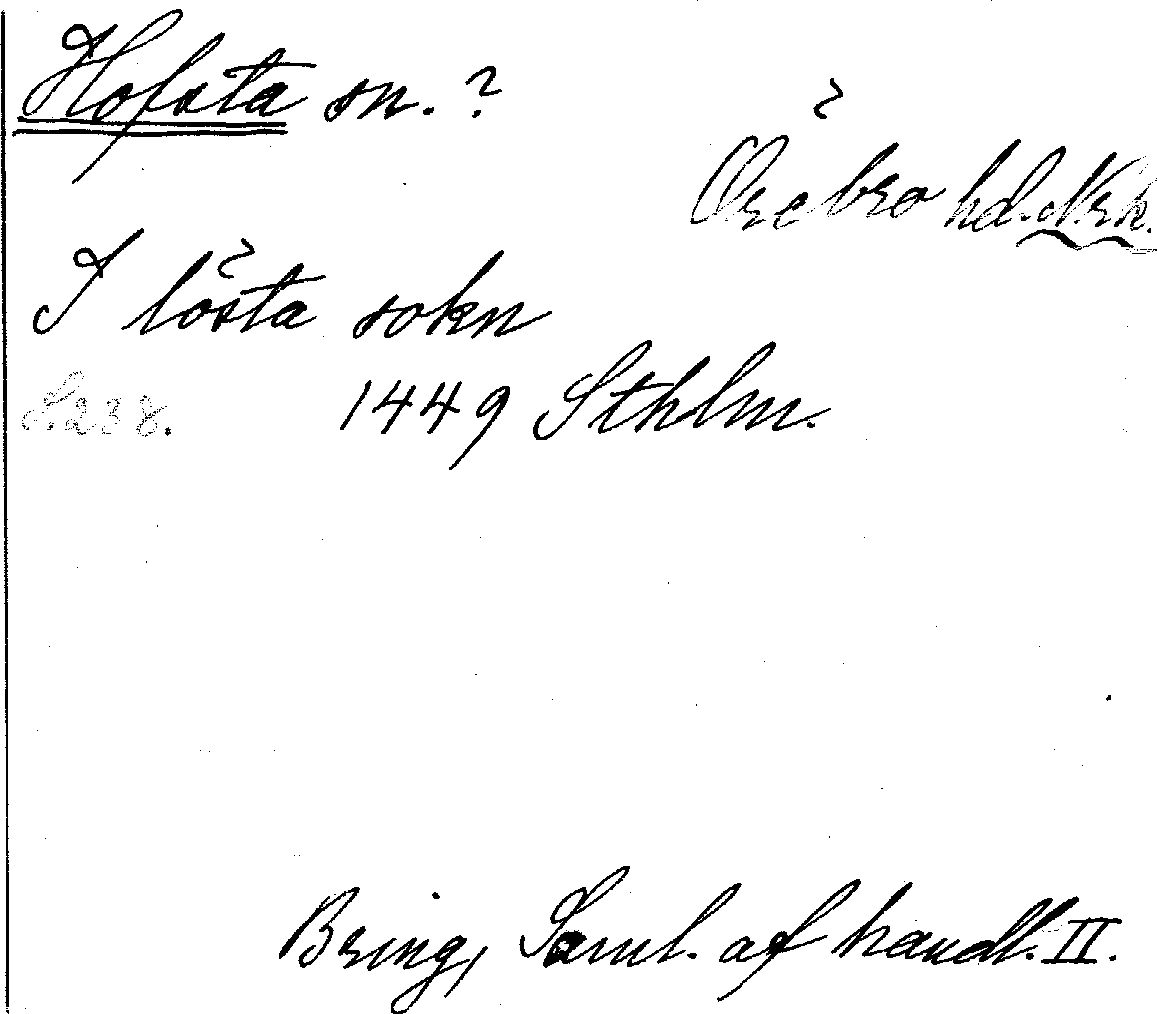 Hofsta sn. ?
Örebro hd. Nrk.
I lösta sokn
S. 238. 1449 Sthlm.
Bring, Saml. af handl. II.